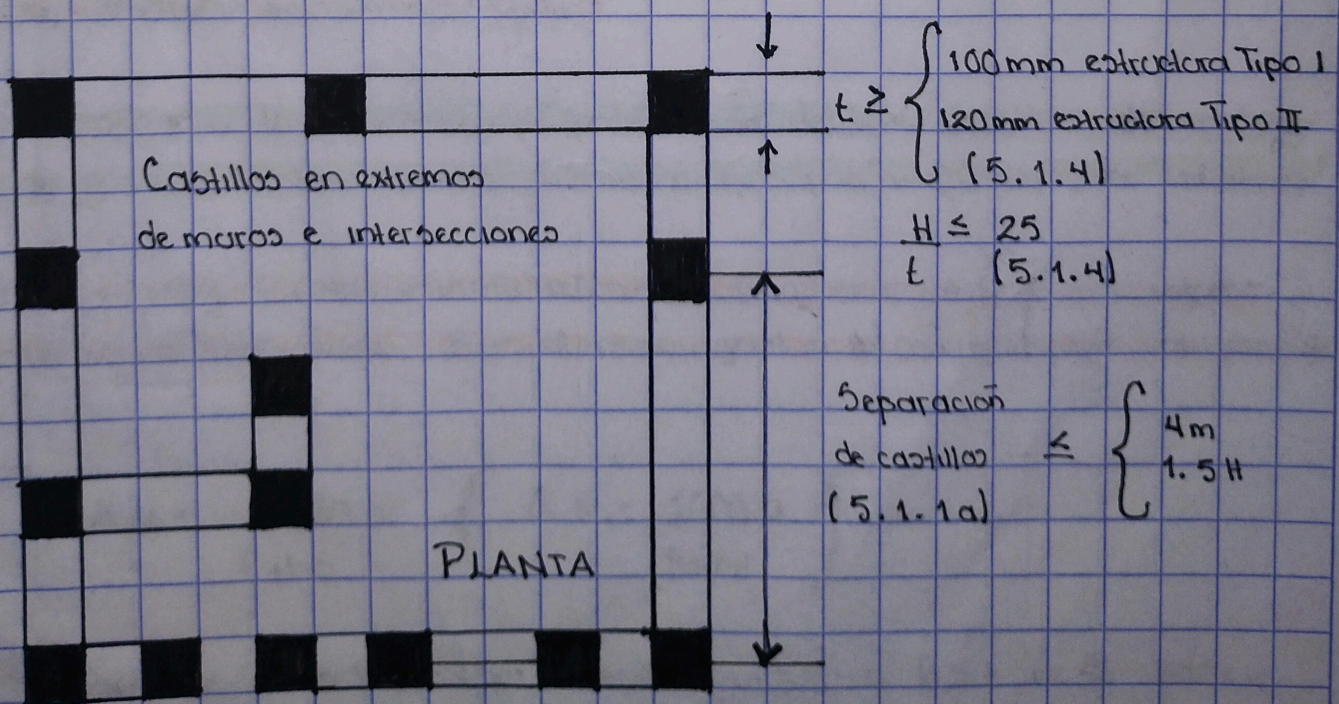 Castillos en extremos
de muros e intersecciones
PLANTA
t ≥ { 100mm estructura Tipo I
120mm estructura Tipo II
(5.1.4)
H/t ≤ 25
(5.1.4)
Separación
de castillos ≤ { 4m
1.5H
(5.1.1a)